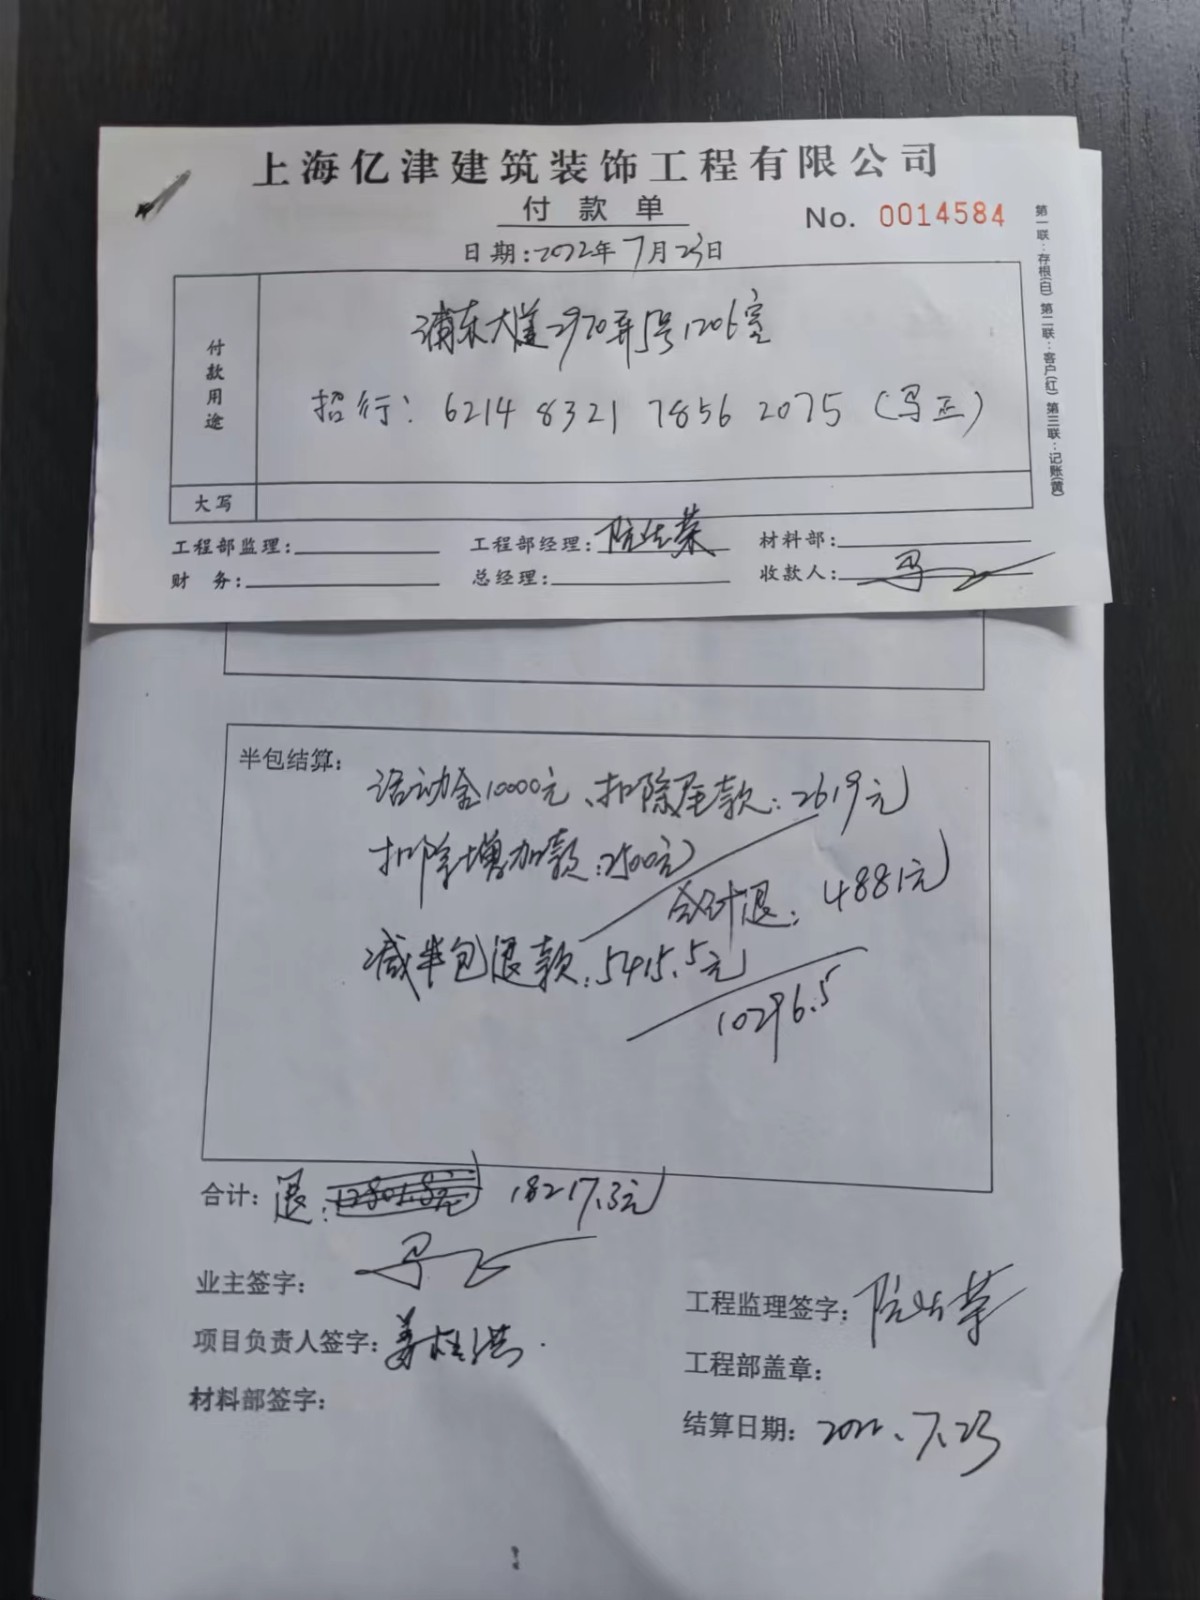 上海亿津建筑装饰工程有限公司
付款单
No. 0014584
日期:2022年7月23日
第一联:存根(白) 第二联:客户(红) 第三联:记账(黄)
付款用途
浦东大道2970弄5号1206室
招行: 6214 8321 7856 2075 (马正)
大写
工程部监理: 工程部经理: 阮仕荣 材料部:
财 务: 总经理: 收款人: 马正
半包结算:
活动金10000元、扣除尾款:2619元
扣除增加款:2500元
合计退:4881元
减半包退款:5415.5元
10296.5
合计:退:12801.8元 18217.3元
业主签字: 马正
工程监理签字: 阮仕荣
项目负责人签字:
工程部盖章:
材料部签字:
结算日期: 2022.7.23